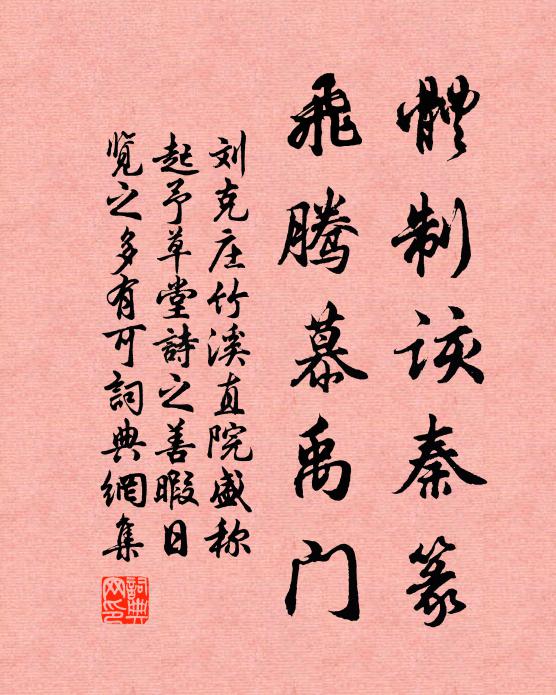 體制该秦篆
飛騰慕禹门
刘克庄竹溪直院盛称
起予草堂詩之善暇日
览之多有可詞典網集
詞典
网印